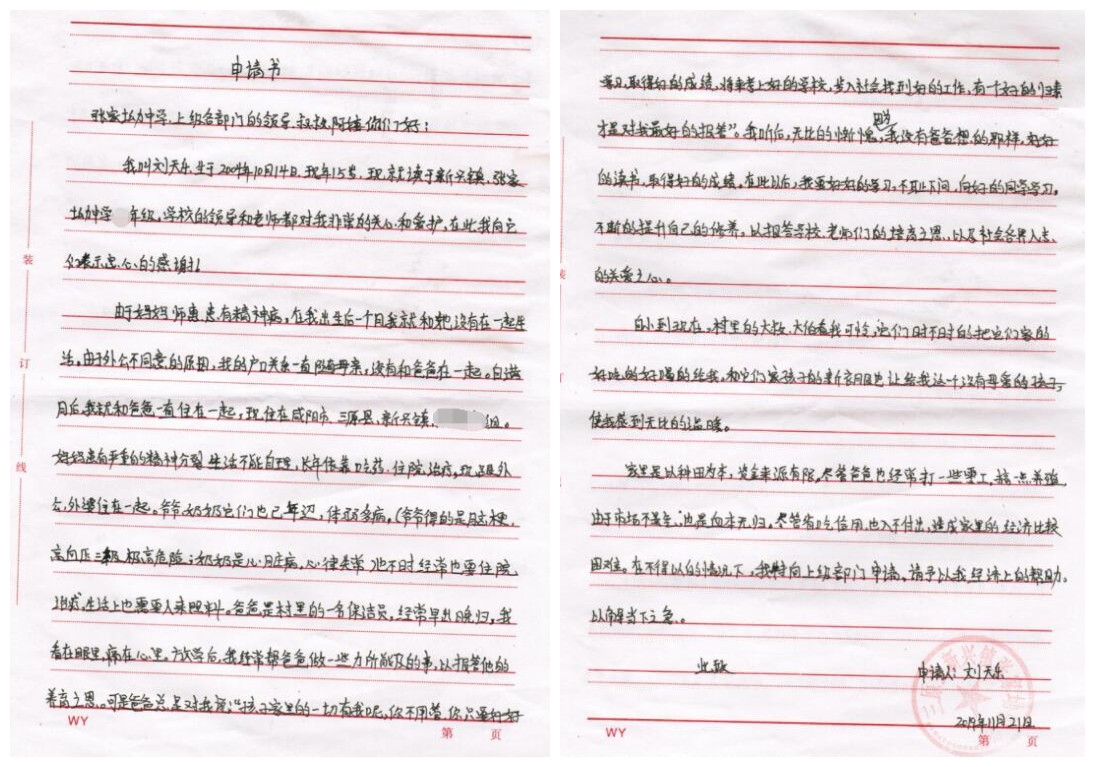 申请书
张家坳中学、上级各部门的领导、叔叔、阿姨你们好：
我叫刘天乐，生于2004年10月14日，现年15岁，现就读于新兴镇、张家
坳中学 年级，学校的领导和老师都对我非常的关心和爱护，在此我向它
们表示衷心的感谢！
由于妈妈师惠患有精神病，在我出生后一个月我就和她没有在一起生
活，由于外公不同意的原因，我的户口关系一直随母亲，没有和爸爸在一起。自满
月后，我就和爸爸一直住在一起，现住在咸阳市、三原县、新兴镇、 组。
妈妈患有严重的精神分裂 生活不能自理，长年依靠吃药、住院治疗，现跟外
公、外婆住在一起。爷爷奶奶它们也已年迈，体弱多病。（爷爷得的是脑梗，
高血压三级 极高危险；奶奶是心脏病，心律失常 他不时经常也要住院
治疗，生活上也需要人来照料。爸爸是村里的一名保洁员，经常早出晚归，我
看在眼里，痛在心里。放学后，我经常帮爸爸做一些力所能及的事，以报答他的
养育之恩。可是爸爸总是对我说：“孩子家里的一切有我呢，你不用管，你只要好好
学习，取得好的成绩，将来考上好的学校，步入社会找到好的工作，有一个好的归宿
才是对我最好的报答”。我听后，无比的惭愧，我没有爸爸想的那样，好好
的读书，取得好的成绩。在此以后，我要好好的学习，不耻下问，向好的同学学习，
不断的提升自己的修养，以报答学校、老师们的培育之恩、以及社会各界人士、
的关爱之心。
自小到现在，村里的大叔、大伯看我可怜，它们时不时的把它们家的
好吃的好喝的给我，和它们家孩子的新衣服也让给我这个没有母爱的孩子，
使我感到无比的温暖。
家里是以种田为本，资金来源有限，尽管爸爸也经常打一些零工，搞点养殖，
由于市场不景气，也是血本无归，尽管省吃俭用，也入不付出，造成家里的经济比较
困难。在不得以的情况下，我特向上级部门申请，请予以我经济上的帮助，
以解当下之急。
此致
申请人：刘天乐
2019年11月21日
WY
第 页
WY
第 页
装
订
线